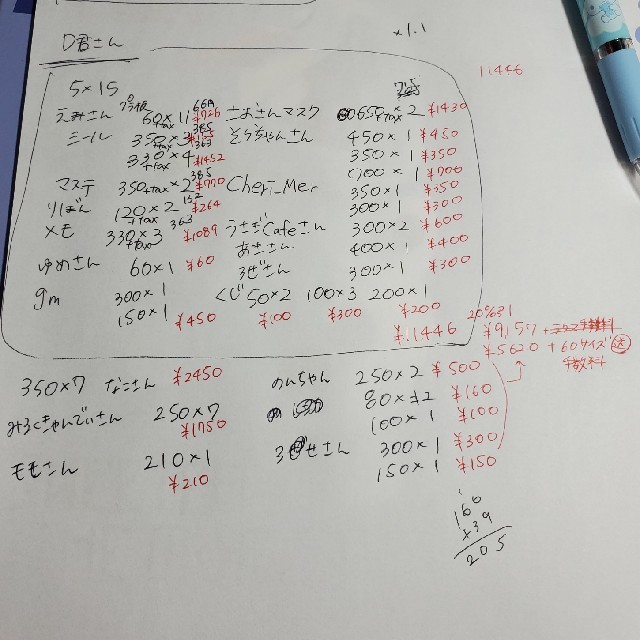 D君さん
×1.1
11446
5×15
えみさん 60×11 ¥726 さおさんマスク 650×2 ¥1430
+tax
シール 350×3 そらちゃんさん 450×1 ¥450
+tax
330×4 ¥1452 350×1 ¥350
+tax
マステ 350+tax×2 385 ¥770 Cheri_Me. 700×1 ¥700
りぼん 120×2 132 ¥264 350×1 ¥350
+tax
メモ 330×3 363 ¥1089 300×1 ¥300
+tax
うさぎCafeさん 300×2 ¥600
あきさん 400×1 ¥400
ゆめさん 60×1 ¥60 300×1 ¥300
gm 300×1 くじ 50×2 100×3 200×1
150×1 ¥450 ¥100 ¥300 ¥200
¥11446
20%引
¥9,157
¥5620 +60サイズ 送
手数料
350×7 なこさん ¥2450 のんちゃん 250×2 ¥500
みるくきゃんでぃさん 250×7 80×2 ¥160
¥1750 100×1 ¥100
ももさん 210×1 300×1 ¥300
¥210 150×1 ¥150
160
×39
205